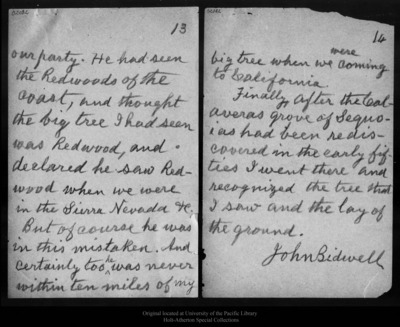 13
our party. He had seen
the Redwoods of the
coast, and thought
the big tree I had seen
was Redwood, and
declared he saw Red-
wood when we were
in the Sierra Nevada &c.
But of course he was
in this mistaken. And
certainly too he was never
within ten miles of my
14
big tree when we were coming
to California.
Finally, after the Cal-
averas grove of Sequo-
ias had been redis-
covered in the early fif-
ties I went there and
recognized the tree that
I saw and the lay of
the ground.
John Bidwell
Original located at University of the Pacific Library
Holt-Atherton Special Collections